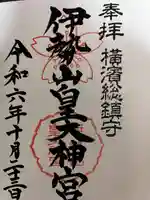 奉拝 横濱総鎮守
伊勢山皇大神宮
令和六年十月二十三日